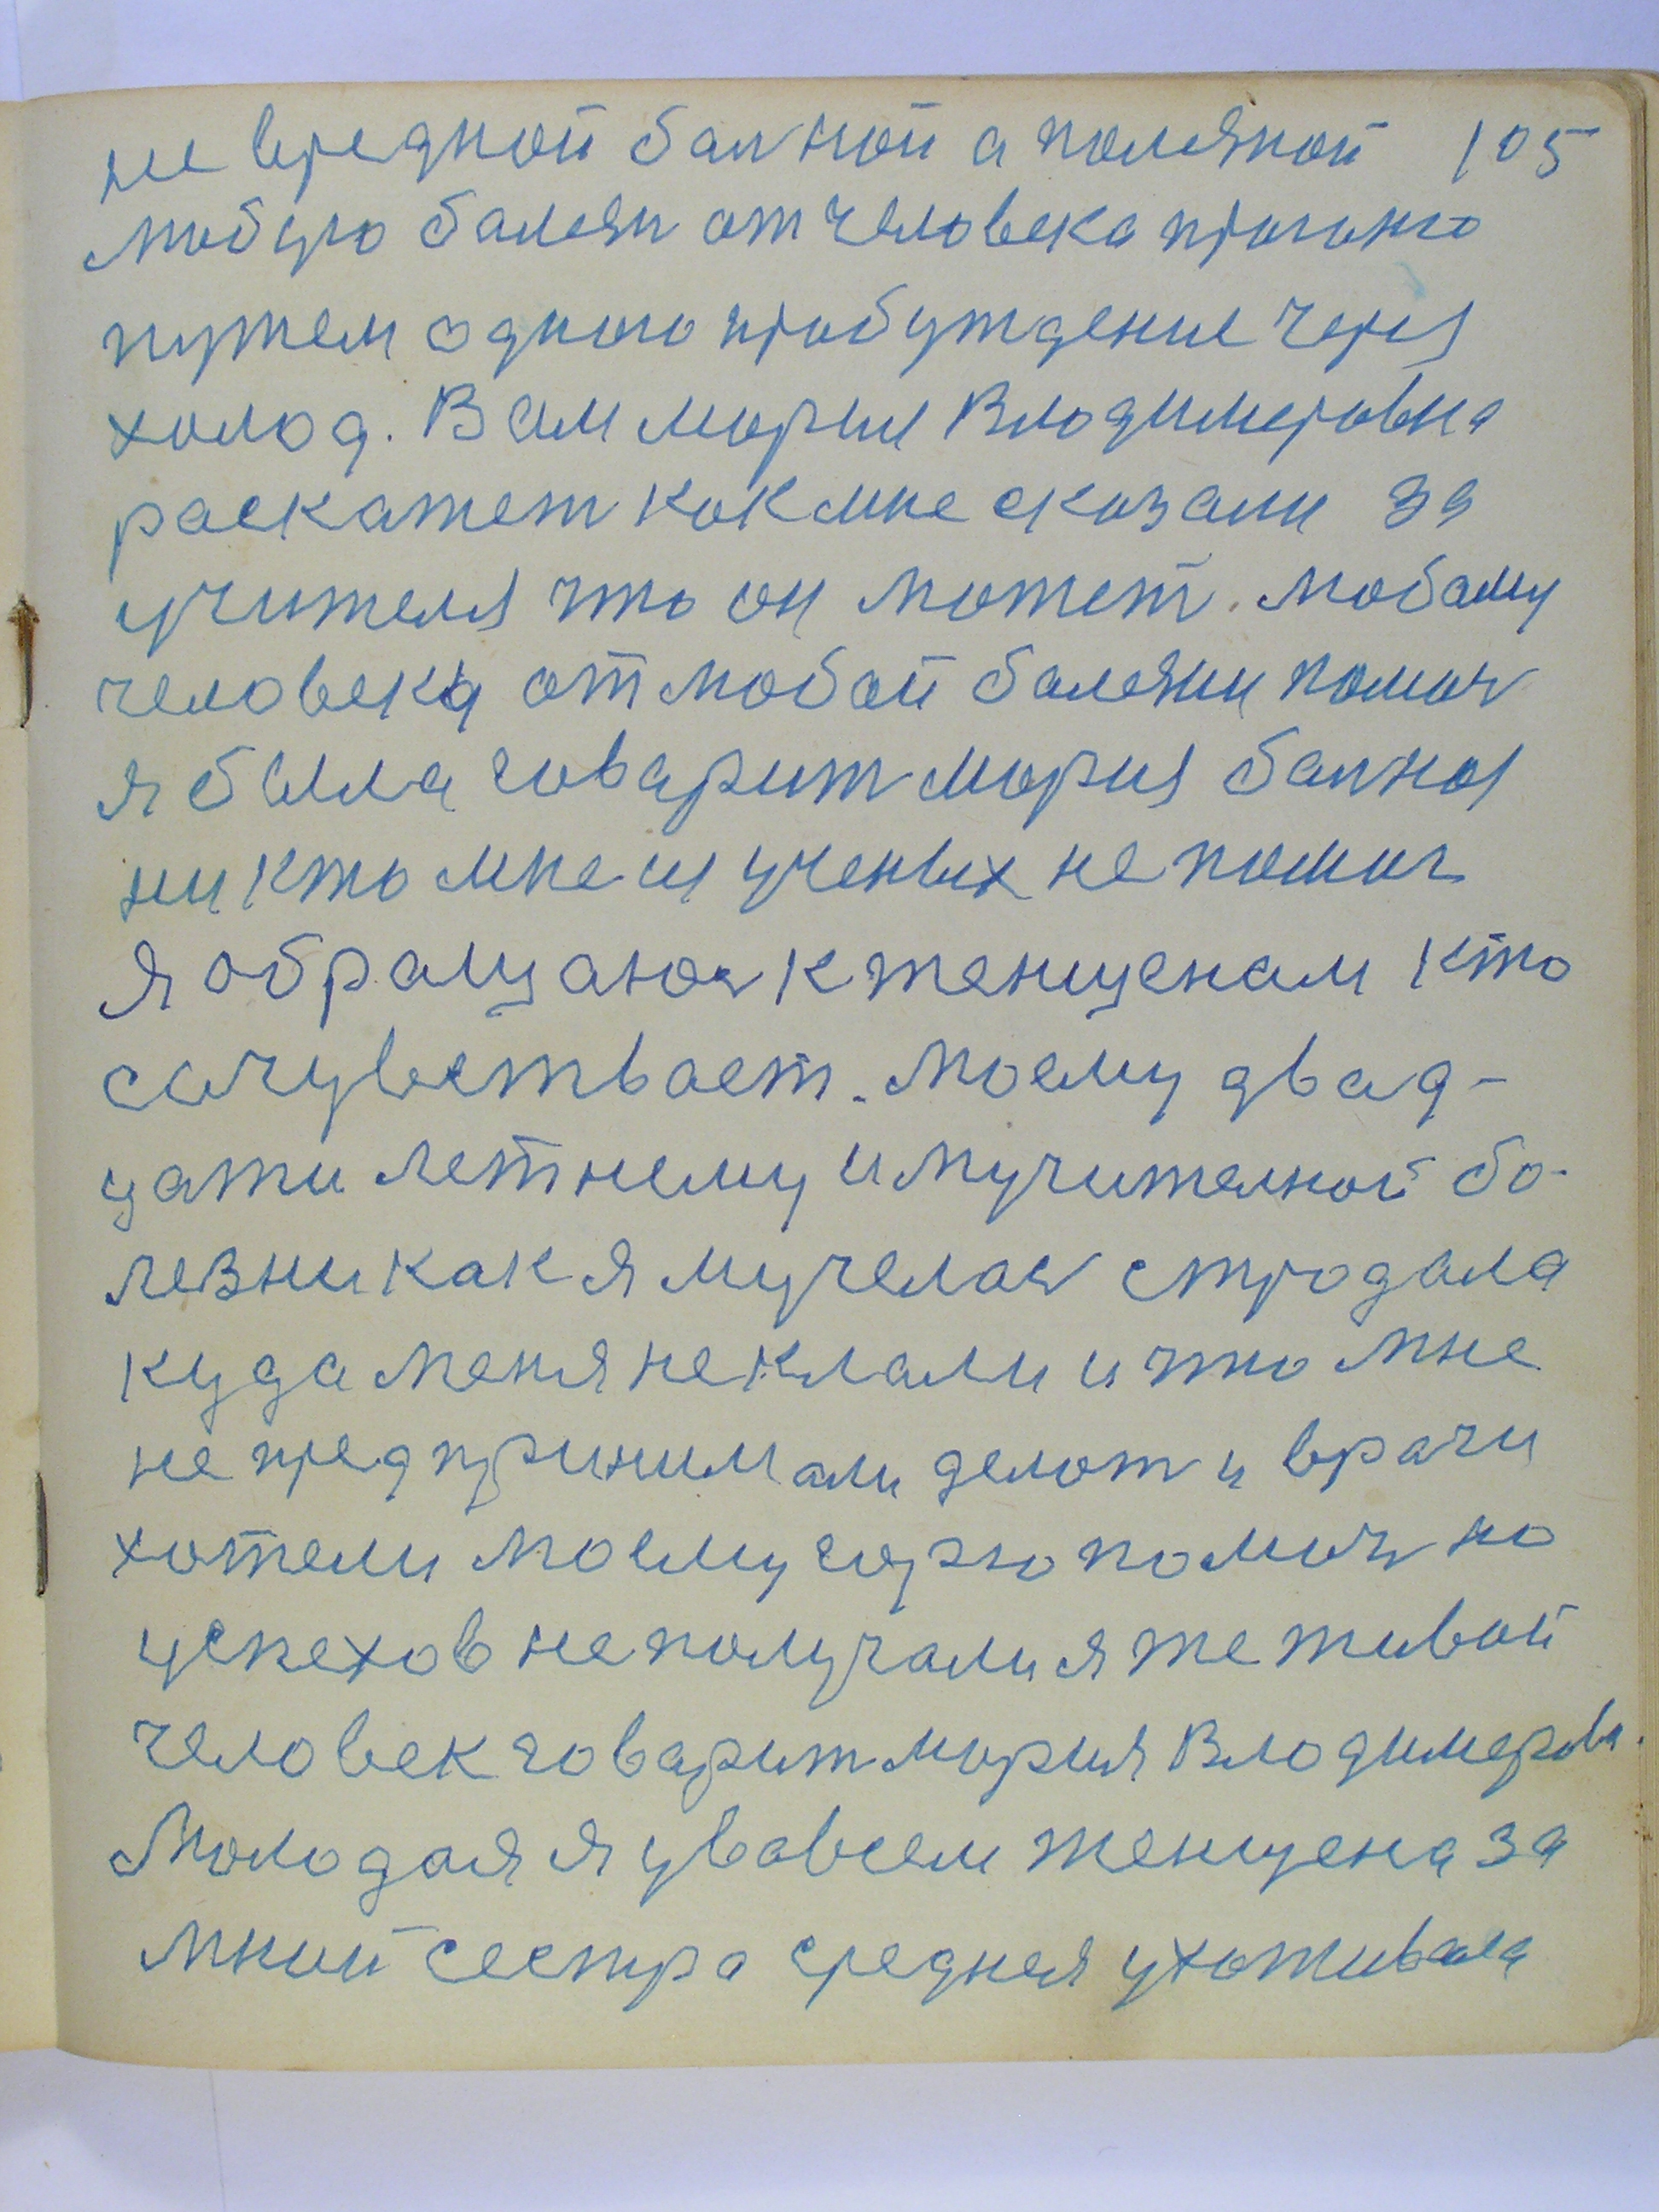 не вредной балной а полезной 105
любую балезн от человека прогоню
путем одного пробуждение через
холод. Вам мория Влодимеровна
раскажет как мне сказали за
учителя что он может. любому
человека от любой балезни помоч
я была говарит мория балноя
ни кто мне из ученых не помог
я обращаюс к женщенам кто
сочувствает. моему двад-
цати летнему и мучителной бо-
лезни как я мучелас стродала
куда меня не клали и что мне
не предпринимали делот и врачи
хотели моему горю помоч но
успехов не получали я же живой
человек говарит мория Влодимеровн.
Молодая я увовсем женщена за
мной сестра средняя ухаживала